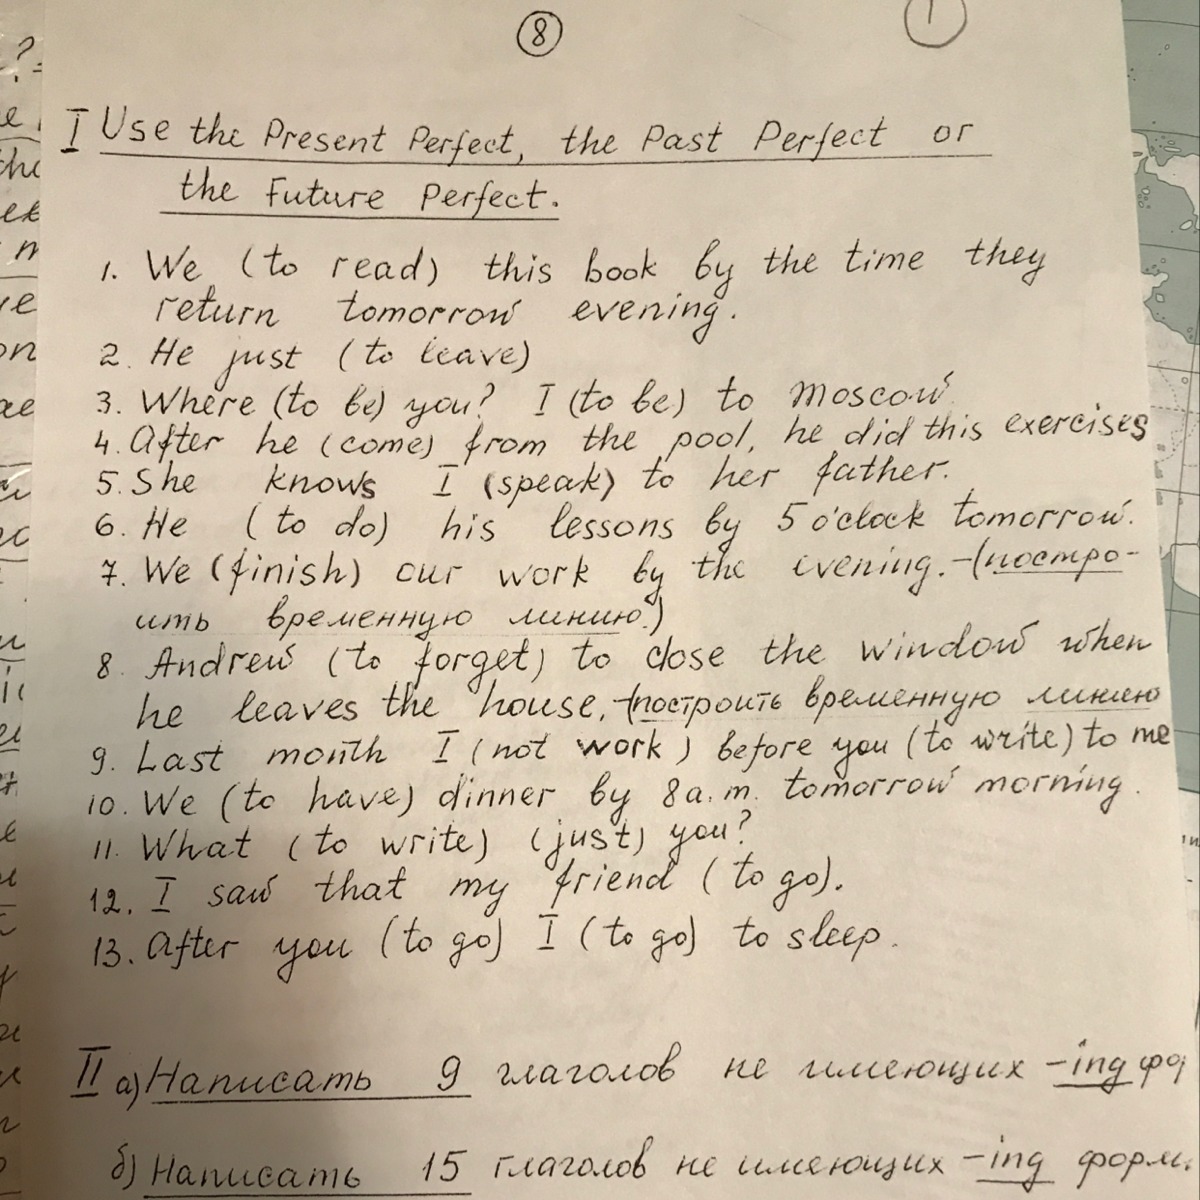 8
1
I Use the Present Perfect, the Past Perfect or
the Future Perfect.
1. We (to read) this book by the time they
return tomorrow evening.
2. He just (to leave)
3. Where (to be) you? I (to be) to Moscow.
4. After he (come) from the pool, he did this exercises
5. She knows I (speak) to her father.
6. He (to do) his lessons by 5 o'clock tomorrow.
7. We (finish) our work by the evening. -(постро-
ить временную линию.)
8. Andrew (to forget) to close the window when
he leaves the house, -(построить временную линию
9. Last month I (not work) before you (to write) to me
10. We (to have) dinner by 8 a.m. tomorrow morning.
11. What (to write) (just) you?
12. I saw that my friend (to go).
13. After you (to go) I (to go) to sleep.
II а) Написать 9 глаголов не имеющих -ing
б) Написать 15 глаголов не имеющих -ing форм.